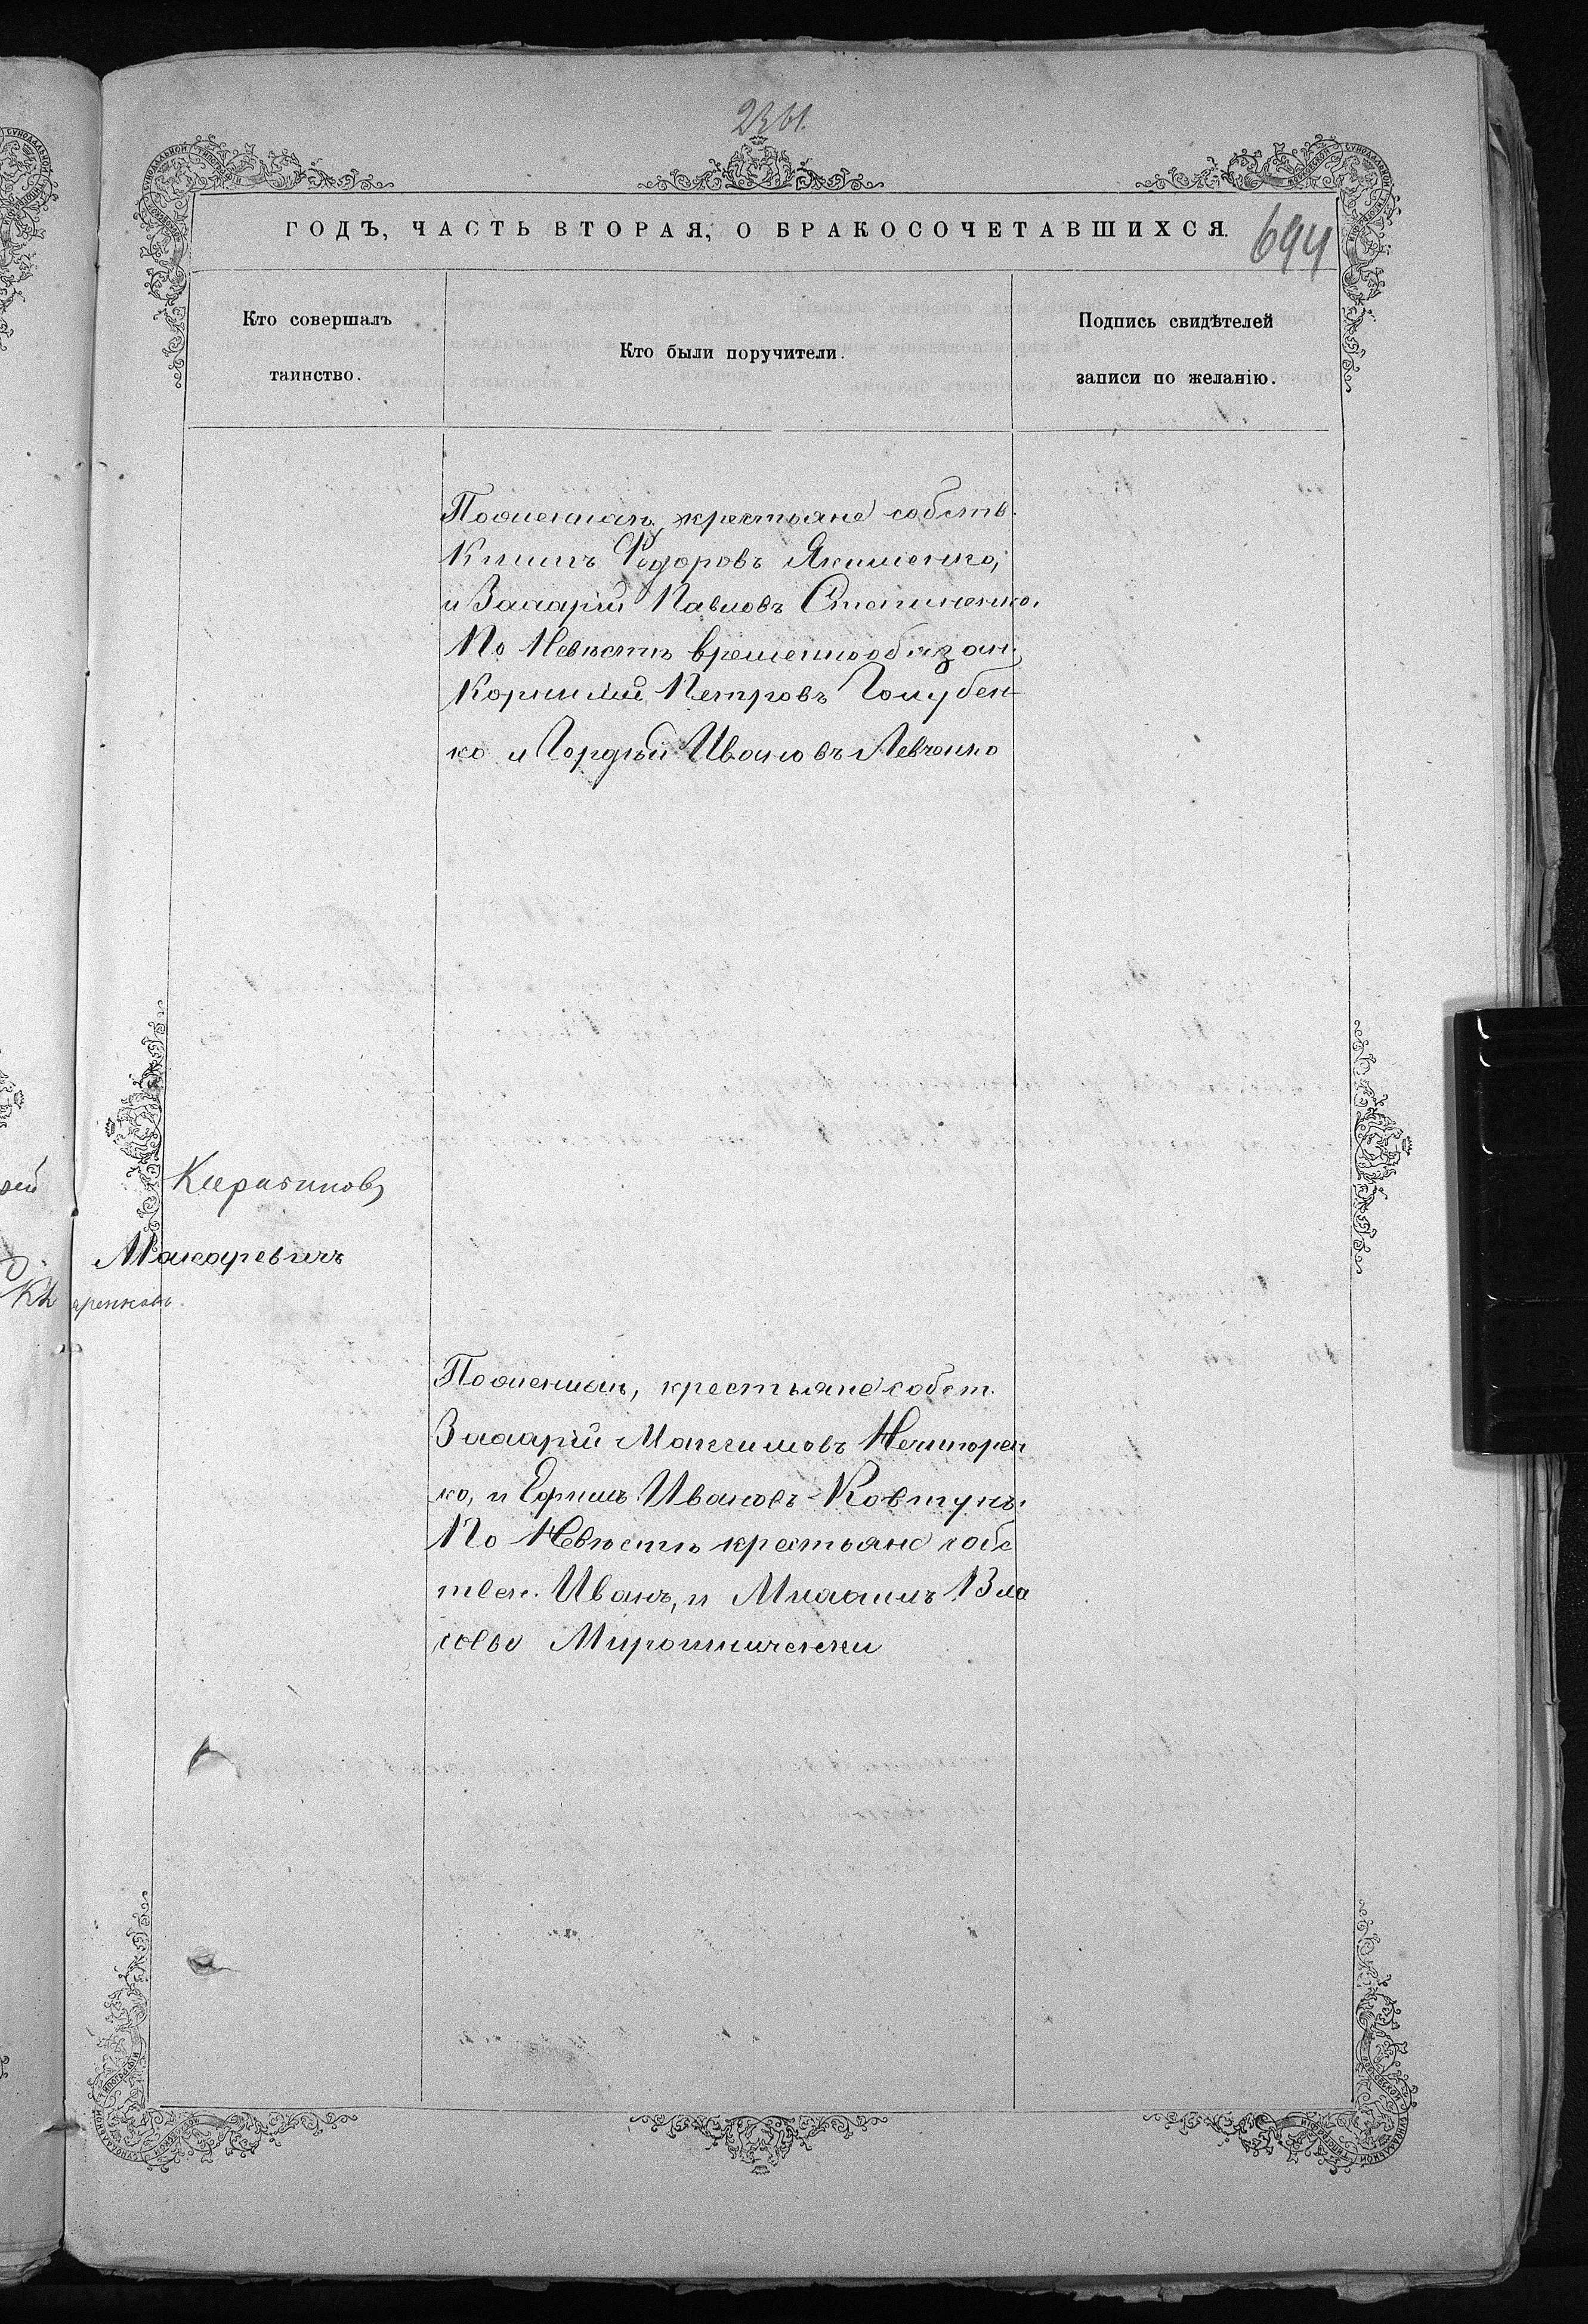 2361.
ГОДЪ, ЧАСТЬ ВТОРАЯ, О БРАКОСОЧЕТАВШИХСЯ.
694
Кто совершалъ
таинство.
Кто были поручители.
Подпись свидѣтелей
записи по желанію.
По женихѣ, крестьяне собств.
Климъ Федоровъ Якименко,
и Захарій Павловъ Степаненко.
По Невѣстѣ временнообязан.
Корнилій Петровъ Голубен-
ко и Гордѣй Ивановъ Левченко
Макаревичъ
По женихѣ, крестьяне собст.
Захарій Максимовъ Нечипорен
ко, и Ефимъ Ивановъ Ковтунъ.
По Невѣстѣ крестьяне собс
твен. Иванъ, и Михаилъ Вла
совы Мирошниченки